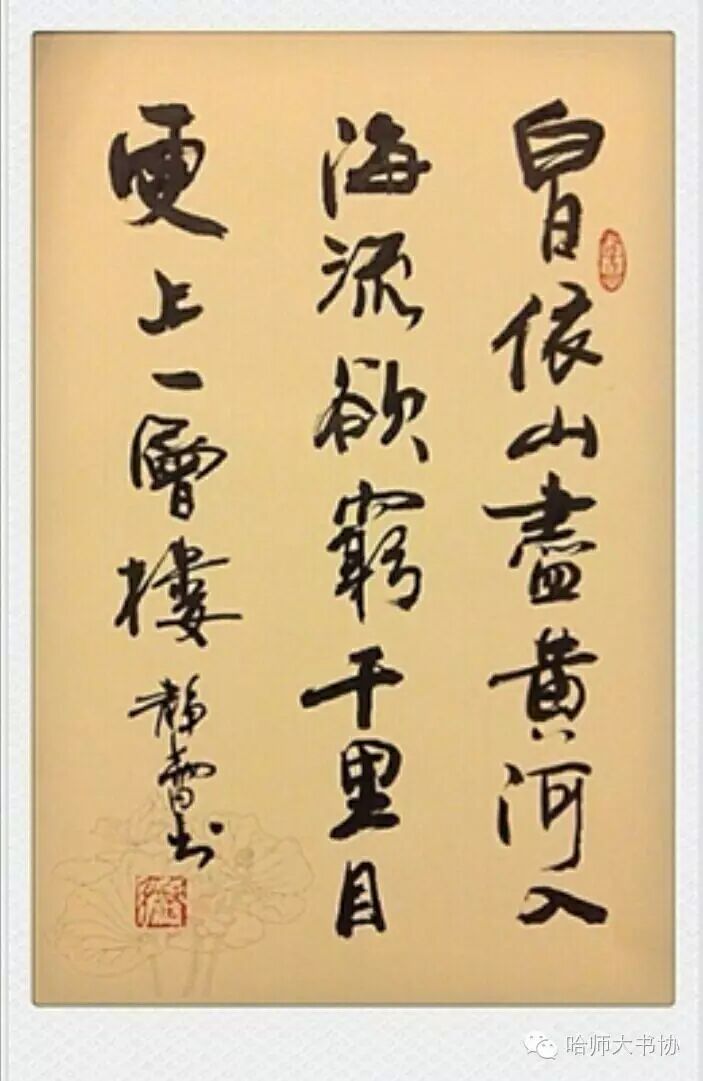 白日依山盡黄河入
海流欲窮千里目
更上一層樓
静 书
哈师大书协